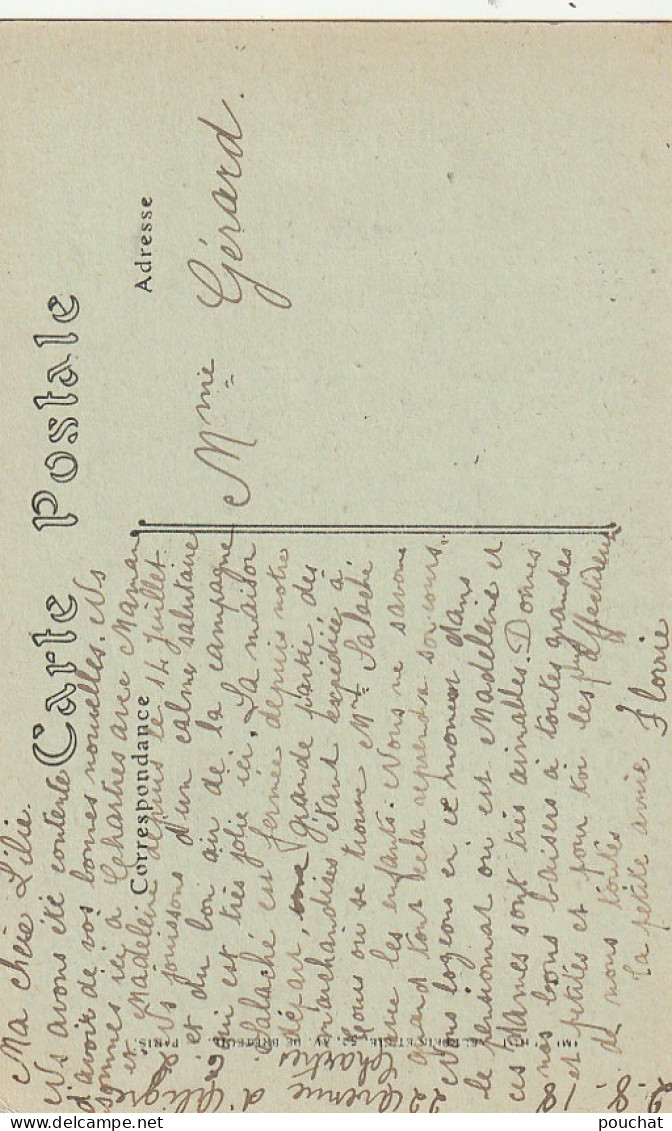 Carte Postale
Correspondance
Adresse
Mme Gérard.
2-8-18
22 avenue d'Aligre
Chartres
Ma chère Lilie.
Ns avons été contente
d'avoir de vos bonnes nouvelles. Ns
sommes ici à Chartres avec Maman
et Madeleine depuis le 14 Juillet
Ns jouissons d'un calme salutaire
et du bon air de la campagne
qui est très jolie ici. La maison
Salaché est fermée depuis notre
départ, une grande partie des
marchandises étant expédiée à
Tours où se trouve Mme Salaché
avec les enfants. Nous ne savons
quand tout cela reprendra son cours.
Nous logeons en ce moment dans
le pensionnat où est Madeleine et
ces dames sont très aimables. Donnes
nos bons baisers à toutes grandes
et petites et pour toi les plus affectueux
de nous toutes
Ta petite amie Florrie
52, AV. DE BRETEUIL, PARIS.
pouchat